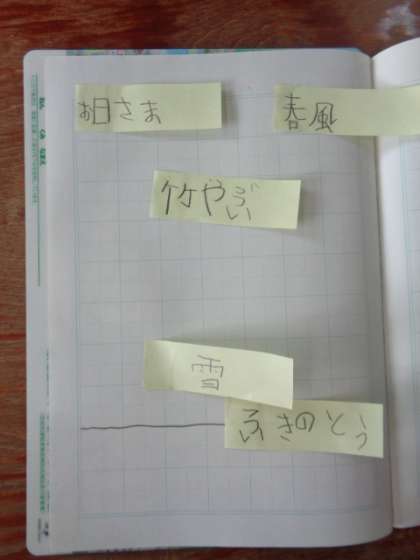 お日さま
春風
竹やぶ
雪
ふきのとう